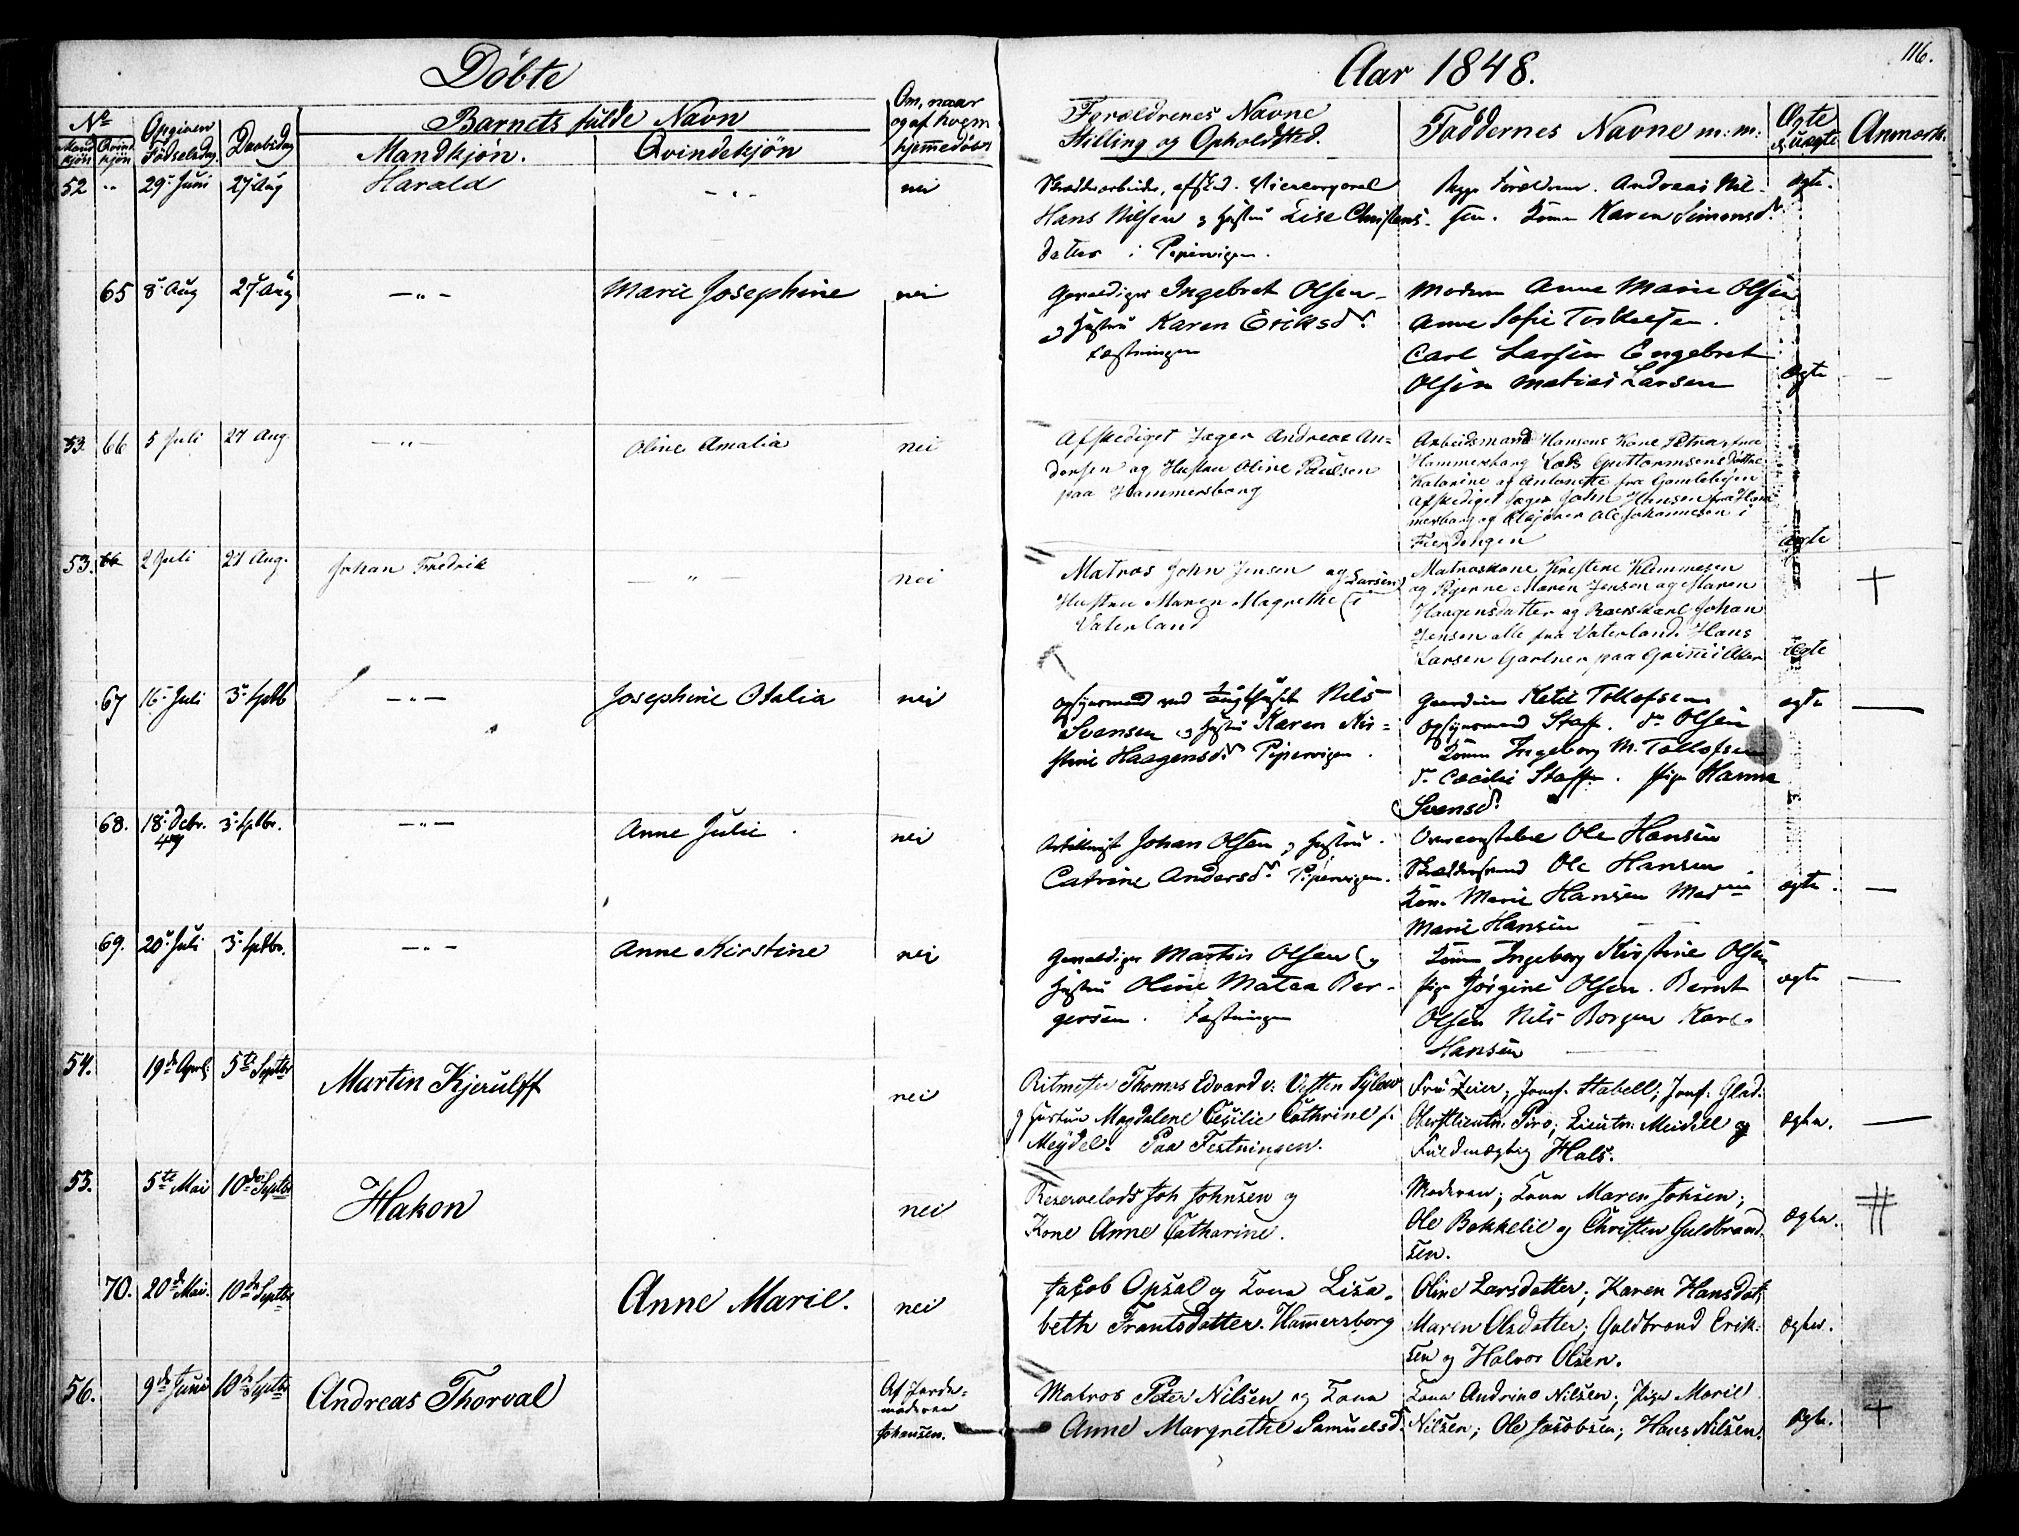 Döbte
Aar 1848.
116.
No
Mandkjön
Qvindkjön
Opgiven Födselsdag
Daabsdag
Barnets fulde Navn
Mandkjön.
Qvindekjön
Om, naar og af hvem hjemmedöbt
Forældrenes Navne
Stilling og Opholdsted.
Faddernes Navne m: m:
Ægte el. uægte
Anmærk.
52 " 29 Juni 27 Aug Harald - " - nei
Hans Nilsen og Hustru Lise Christens-
datter i Pipervigen.
Begge Forældrene. Andreas Nil-
sen. Kone Karen Simonsd.
ægte.
65 8 Aug 27 Aug - " - Marie Josephine nei
Gevaldiger Ingebret Olsen
og Hustru Karen Eriksd.
Fæstningen
Moderen Anne Marie Olsen
Anne Sofie Torkelsen.
Carl Larsen Engebret
Olsen Matias Larsen
Ægte
53. 66 5 Juli 27 Aug. - " - Oline Amalia nei
Afskediget Jæger Andreas An=
dersen og Hustru Oline Paulsen
paa Hammersborg
Arbeidsmand Hansens Kone Petra, fra
Hammersborg Lars Guttormsens Döttre
Katarine og Antonette fra Gamlebyen
Afskediget Jæger John Hansen fra Ham
mersborg og Ole Johannesen i
Fierdingen
ægte
53. 66 2 Juli 27 Aug. Johan Fredrik - " - nei
Matros John Jensen og
Hustru Maren Magrethe Larsen i
Vaterland
Matroskone Kirstine Klemmesen
og Pigerne Maren Jensen og Maren
Haagensdatter og Johan
Jensen alle fra Vaterland. Hans
Larsen Gartner paa Grimi i Aker
Ægte
67 16 Juli 3 Septb - " - Josephine Otalia nei
Opsynsmand ved Tugthuset Nils
Svensen og Hustru Karen Kir=
stine Haagensd. Pipervigen.
Ketil Tollofsen
Opsynsmand Staff. do Olsen
Kone Ingeborg M. Tollofsen
do Cæcilie Staff. Pige Hanna
Svensd.
ægte
68. 18 Debr. 47 3 Septbr. - " - Anne Julie nei
Artillerist Johan Olsen og Hustru
Catrine Andersd. Pipervigen.
Ole Hansen
Ole Hansen
Kone Marie Hansen
Marie Hansen
ægte.
69. 20 Juli 3 Septbr. - " - Anne Kirstine nei
Gevaldiger Martin Olsen og
Hustru Oline Matea Ber-
gersen. Fæstningen
Kone Ingeborg Kirstine Olsen
Pige Jörgine Olsen. Bernt
Olsen Nils Borgen Karl
Hansen
ægte
54. 19de April 5te Septbr Martin Kjerulff nei
Ritmester Thomas Edvard v: Vesten Sylow
og Hustru Magdalene Cecilie Cathrine f.
Meydel. Paa Festningen.
Fru Zeier; Jomf. Stabell; Jomf. Glad.
Oberstlieutn: Piro; Lieutn: Meidell og
Fuldmægtig Hals.
Ægte.
55. 5te Mai 10de Septbr Hakon nei
Joh Johnsen og
Kone Anne Catharine.
Moderen; Kone Maren Johsen;
Ole Bekkelie og Christen Guldbrand-
sen.
Ægte.
70. 20de Mai. 10de Septbr Anne Marie. nei
Jakob Opsal og Kone Lisa-
beth Frantsdatter. Hammersborg
Oline Larsdatter; Karen Hansdat;
Maren Olsdatter; Guldbrand Erik-
sen og Halvor Olsen.
Ægte.
56. 9de Juni 10de Septbr Andreas Thorval
Af Jorde-
moderen
Johansen.
Matros Peter Nilsen og Kone
Anne Margrethe Samuelsd.
Kone Andrine Nilsen; Pige Marie
Nilsen; Ole Jacobsen; Hans Nilsen.
Ægte.